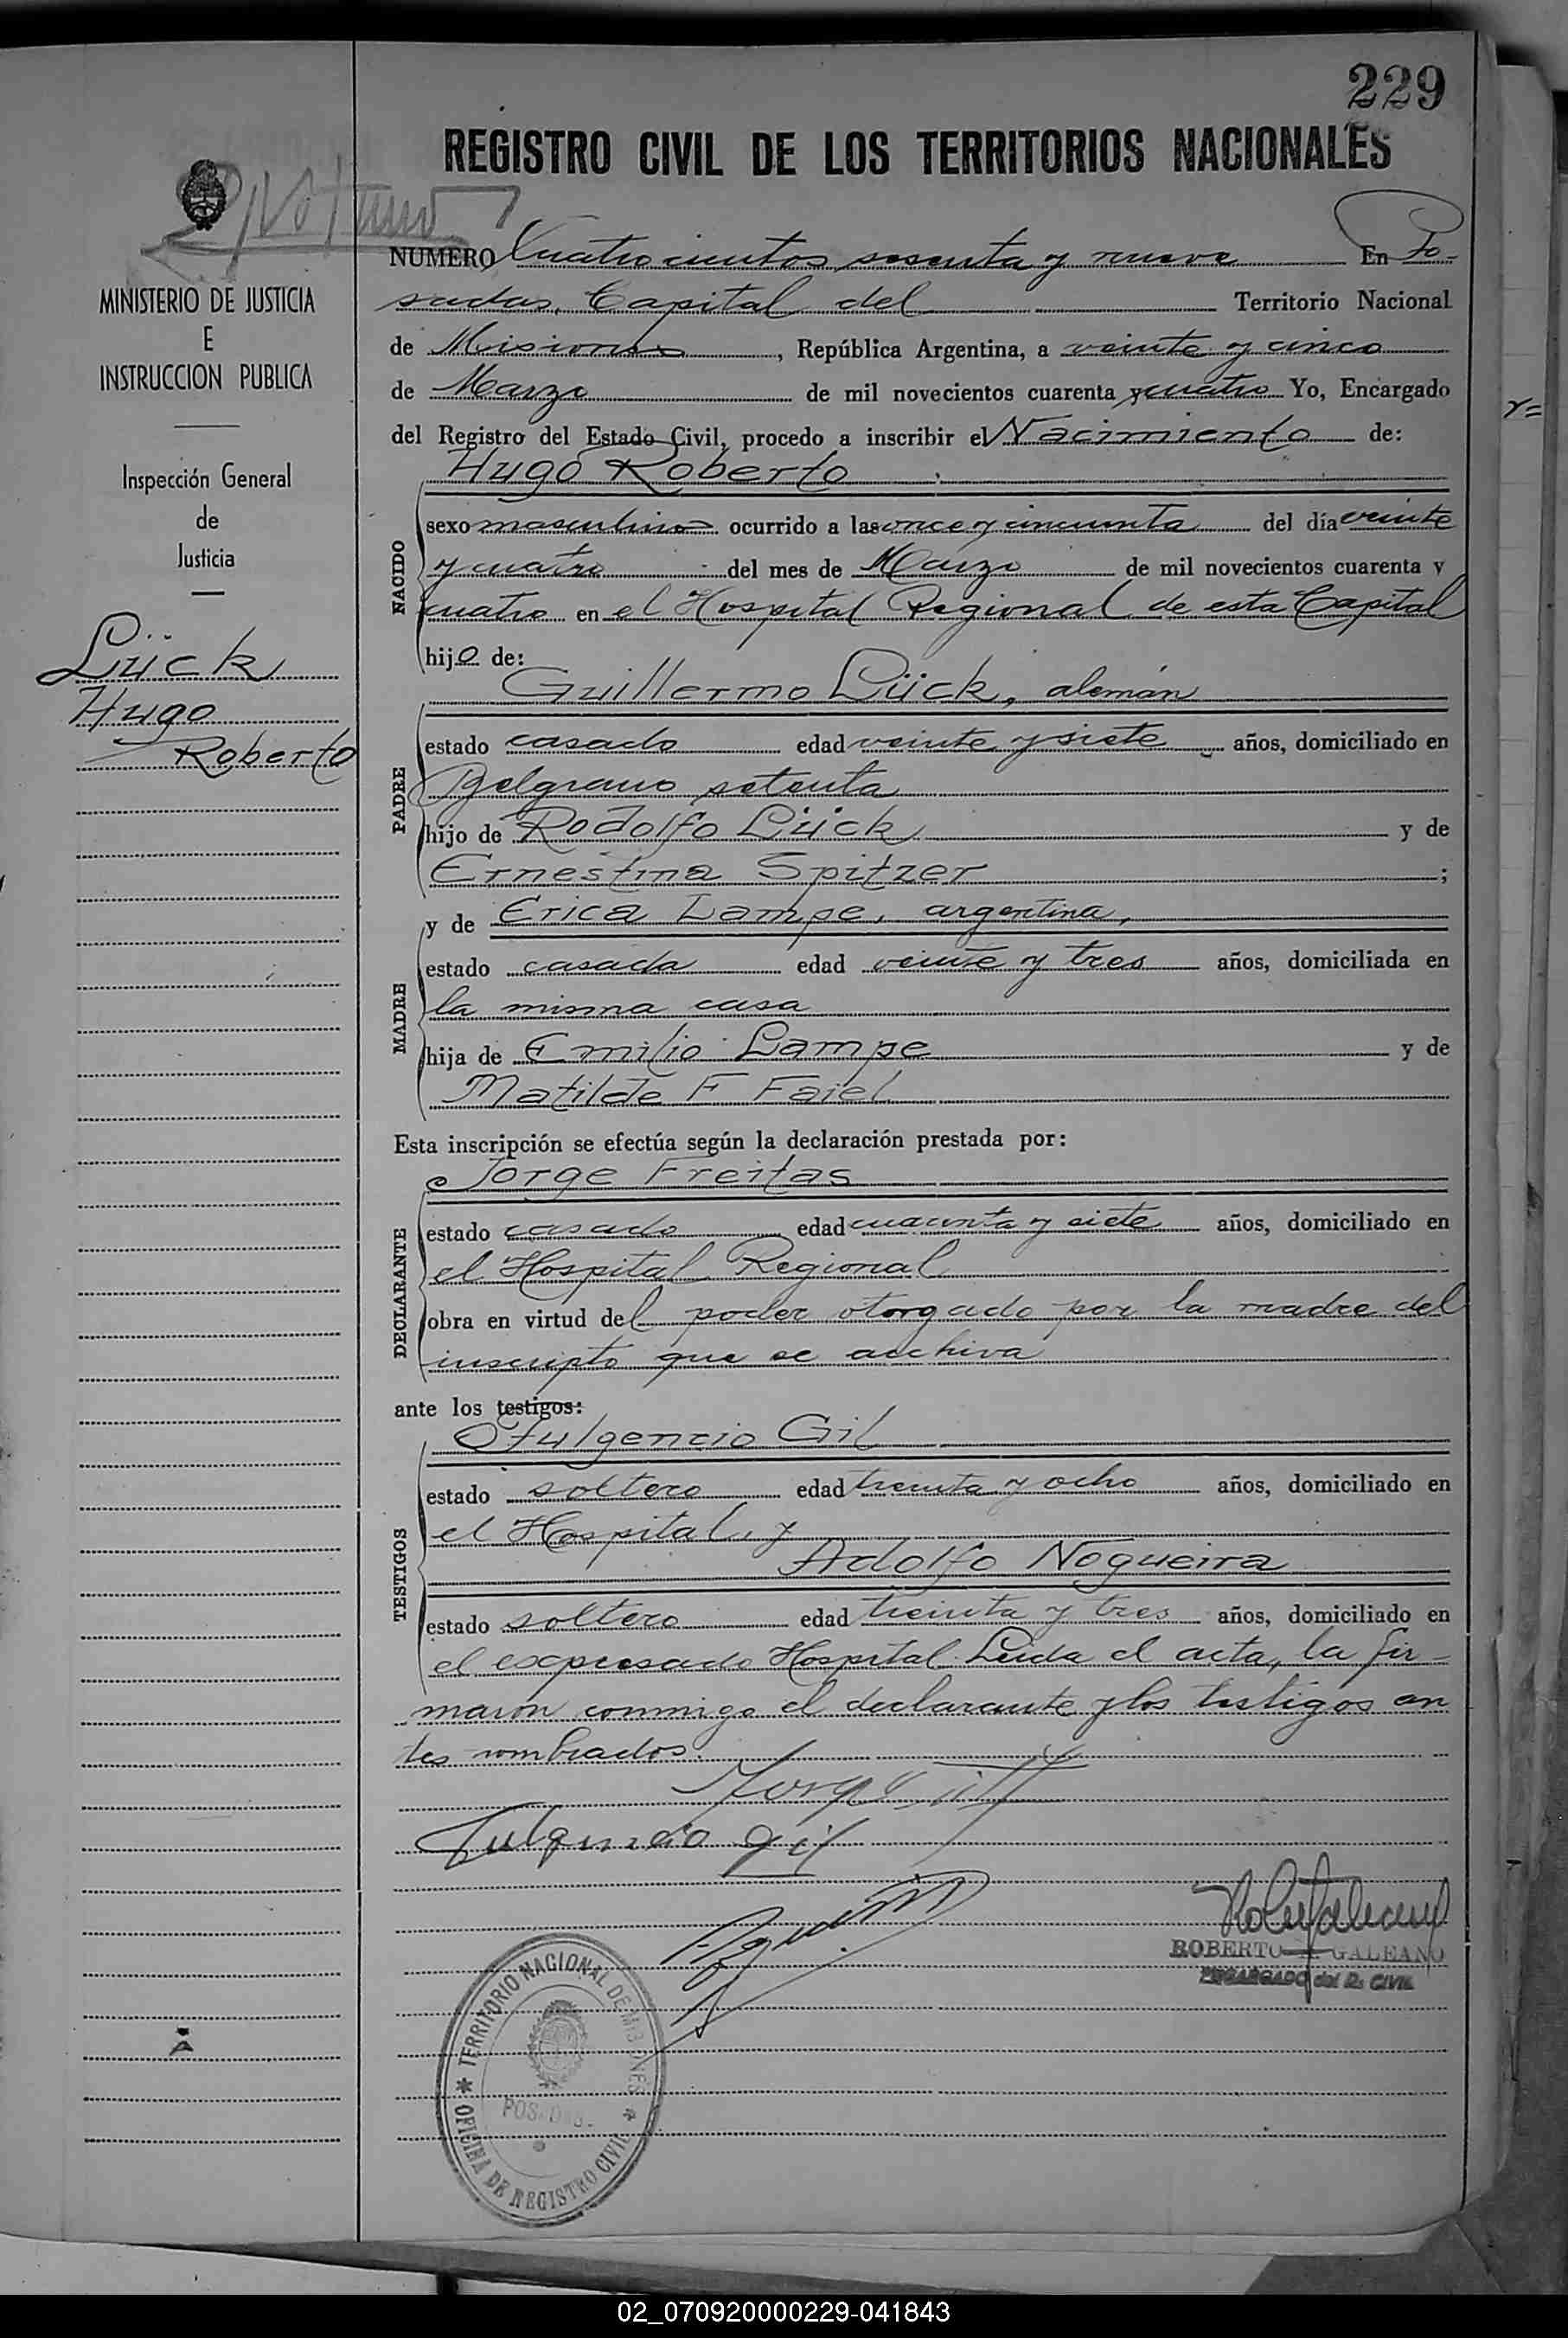 229
REGISTRO CIVIL DE LOS TERRITORIOS NACIONALES
MINISTERIO DE JUSTICIA
E
INSTRUCCION PUBLICA
Inspección General
de
Justicia
Lück
Hugo
Roberto
NUMERO Cuatrocientos sesenta y nueve En Po-
sadas, Capital del Territorio Nacional
de Misiones, República Argentina, a veinte y cinco
de Marzo de mil novecientos cuarenta y cuatro Yo, Encargado
del Registro del Estado Civil, procedo a inscribir el Nacimiento de:
Hugo Roberto
NACIDO
sexo masculino ocurrido a las once y cincuenta del día veinte
y cuatro del mes de Marzo de mil novecientos cuarenta y
cuatro en el Hospital Regional de esta Capital
hijo de:
Guillermo Lück, alemán
PADRE
estado casado edad veinte y siete años, domiciliado en
Belgrano setenta
hijo de Rodolfo Lück y de
Ernestina Spitzer ;
y de Erica Lampe, argentina,
MADRE
estado casada edad veinte y tres años, domiciliada en
la misma casa
hija de Emilio Lampe y de
Matilde F Faiel
Esta inscripción se efectúa según la declaración prestada por:
Jorge Freitas
DECLARANTE
estado casado edad cuarenta y siete años, domiciliado en
el Hospital Regional
obra en virtud del poder otorgado por la madre del
inscripto que se archiva
ante los testigos:
Fulgencio Gil
TESTIGOS
estado soltero edad treinta y ocho años, domiciliado en
el Hospital, y
Adolfo Nogueira
estado soltero edad treinta y tres años, domiciliado en
el expresado Hospital. Leida el acta, la fir-
maron conmigo el declarante y los testigos an
tes nombrados.
Fulgencio Gil
ROBERTO GALEANO
ENCARGADO del R. CIVIL
TERRITORIO NACIONAL DE MISIONES
POSADAS
OFICINA DE REGISTRO CIVIL
02_070920000229-041843